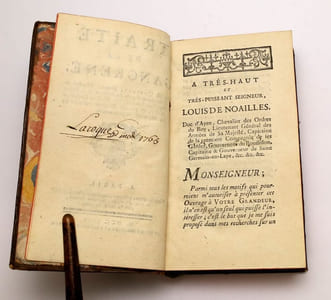 TRAITÉ
GANGRENE,
1763
A TRÈS-HAUT
ET
TRÈS-PUISSANT SEIGNEUR,
LOUIS DE NOAILLES,
Duc d'Ayen, Chevalier des Ordres
du Roy, Lieutenant Général des
Armées de Sa Majesté, Capitaine
de la premiere Compagnie de ses
Gardes, Gouverneur du Roussillon,
Capitaine & Gouverneur de Saint
Germain-en-Laye, &c. &c. &c.
MONSEIGNEUR;
Parmi tout les motifs qui pour-
roient m'autoriser à présenter cet
Ouvrage à VOTRE GRANDEUR,
il n'en est qu'un seul qui puisse l'in-
téresser; c'est le but que je me suis
proposé dans mes recherches sur un